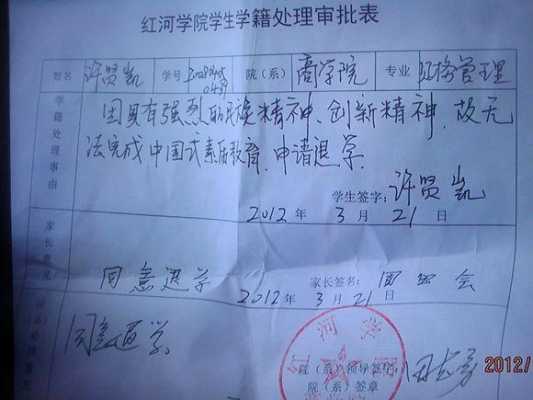 红河学院学生学籍处理审批表
姓名 许贤凯 学号 院（系） 商学院 专业 工商管理
学籍处理事由
因具有强烈的民族精神、创新精神，故无
法完成中国式素质教育，申请退学。
学生签字：许贤凯
2012 年 3 月 21 日
家长意见
同意退学 家长签名：
2012 年 3 月 21 日
同意退学
红河学
院（系）领导签字：
院（系）签章
2012/